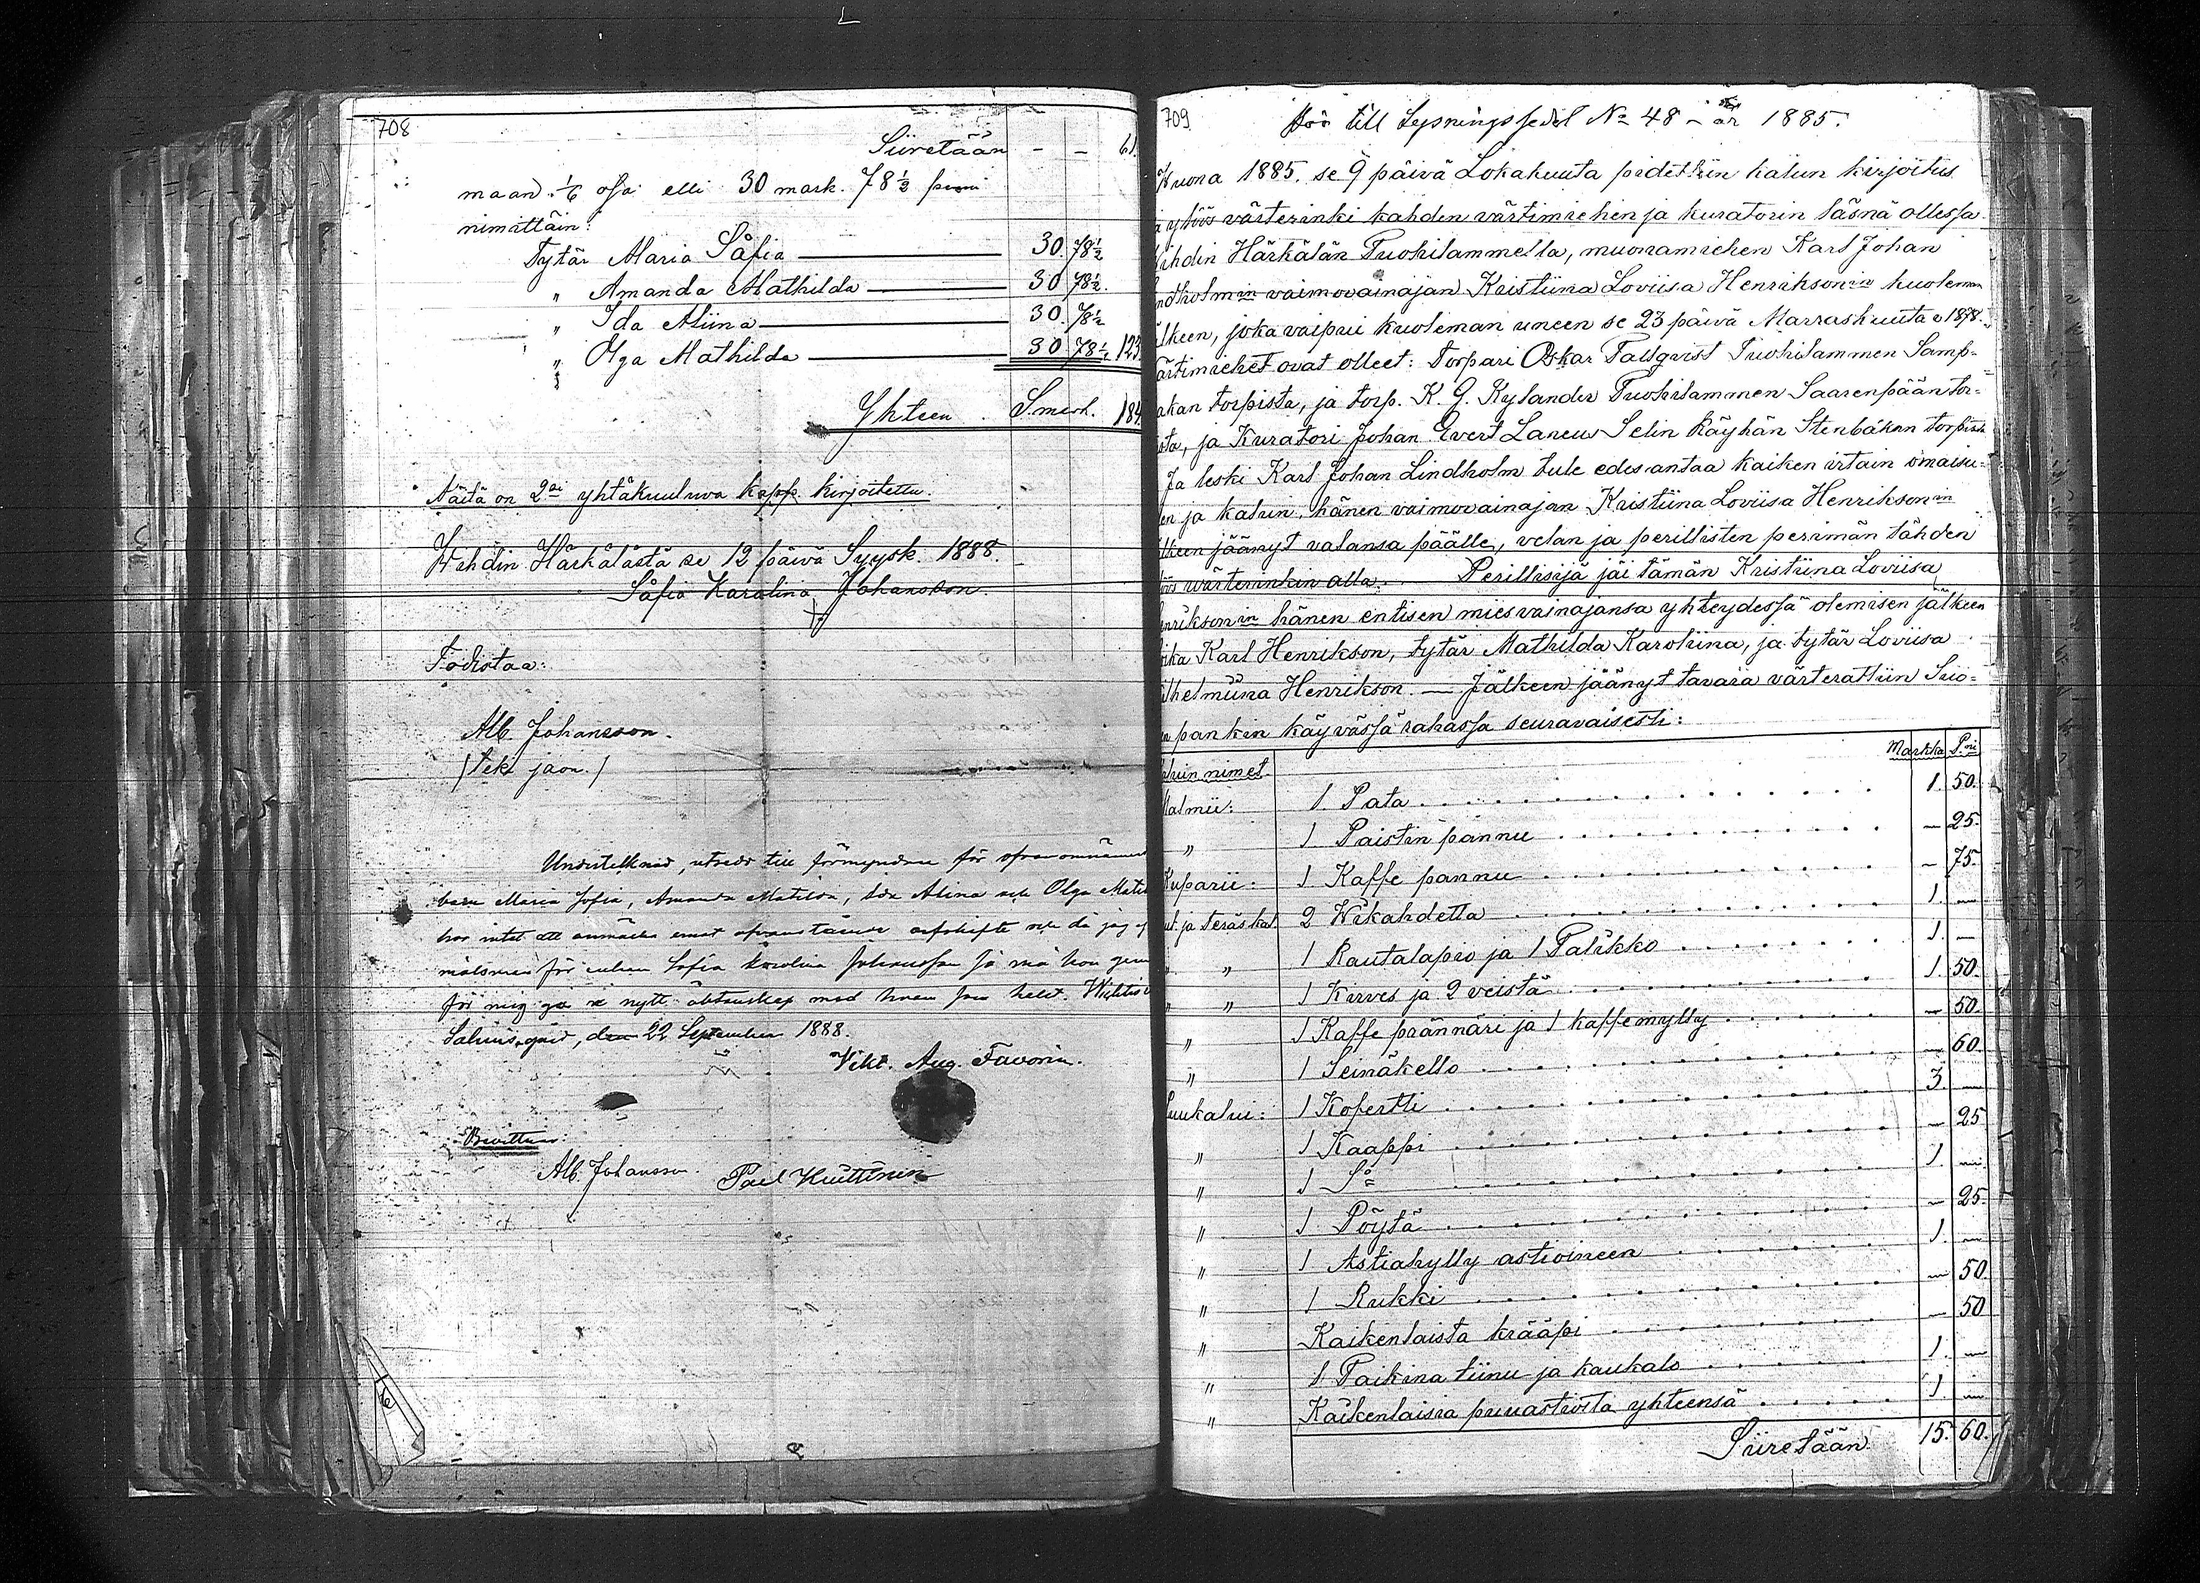 708
Siiretään - - 61.
maan. 1/6 osa elli 30 mark. 78 1/2 penni
nimittäin:
Tytär Maria Såfia 30. 78 1/2
" Amanda Mathilda 30 78 1/2.
" Ida Aliina 30. 78 1/2
" Olga Mathilda 30 78 1/2 123
Yhteen Smark. 184
Näitä on 2si yhtäkuuluva kapp. kirjoitettu.
Wihdin Härkälästä se 12 päivä Syysk. 1888.
Såfia Karolina Johansson.
Todistaa:
Alb. Johansson.
/tekt jaon./
Undertecknad, utsedd till förmyndare för ofvannämnd
barn Maria Sofia, Amanda Matilda, Ida Alina och Olga Matil
har intet att anmärka emot ofvanstående arfskifte och då jag
målsman för enkan Sofia Karolina Johansson så må hon
för mig gå i nytt äktenskap med hvem som helst. Wichtis
gård, den 22 September 1888.
Vikt. Aug. Favorin.
Bevittnas:
Alb. Johansson. Paul
709
till Lysningssedel No 48 - år 1885.
Wuona 1885. se 9 päivä Lokakuuta pidettiin kalun kirjoitus
ja ylös värterinki kahden värtimiehen ja kuratorin läsnä ollessa
Wihdin Härkälän Tuohilammella, muonamiehen Karl Johan
ndholmin vaimovainajan Kristiina Loviisa Henriksonin kuoleman
älkeen, joka vaipui kuoleman uneen se 23 päivä Marraskuuta v 1878.
ärtimiehet ovat olleet: Torpari Oskar Tallqvist Tuohilammen Samp-
akan torpista, ja torp. K. G. Kylander Tuohilammen Saarenpään tor-
sta, ja Kuratori Johan Evert Laneus Selin käyhän Stenbäkan torpista
Ja leski Karl Johan Lindholm tule edesantaa kaiken irtain omaisu-
en ja kalun, hänen vaimovainajan Kristiina Loviisa Henriksonin
lkeen jäänyt valansa päälle, velan ja perillisten perimän tähden
ös wärterinkin alla. Perillisijä jäi tämän Kristiina Loviisa
nriksonin hänen entisen miesvainajansa yhteydessä olemisen jälkeen
oika Karl Henrikson, tytär Mathilda Karoliina, ja tytär Loviisa
ilhelmiina Henrikson. — Jälkeen jäänyt tavara värterattiin Suo-
n pankin käyvässä rahassa seuravaisesti:
Markka P:niä
luin nimet.
almii: 1 Pata 1. 50.
" 1 Paistin pannu — 25.
Kuparii: 1 Kaffe pannu — 75.
ut. ja teräs kal. 2 Wikahdetta 1. —
" " 1 Rautalapio ja 1 Talikko 1. —
" " 1 Kirves ja 2 veistä 1. 50.
" 1 Kaffe prännäri ja 1 kaffemylly — 50.
" 1 Seinäkello — 60.
uukalui: 1 Kofertti 3. —
" 1 Kaappi — 25
" 1 So 1. —
" 1 Pöytä — 25
" 1 Astiahylly astioineen 1. —
" 1 Rukki — 50
" Kaikenlaista krääpi — 50
" 1 Taikina tiinu ja kaukalo 1. —
" Kaikenlaisia puuastioita yhteensä 1. —
Siiretään 15. 60.